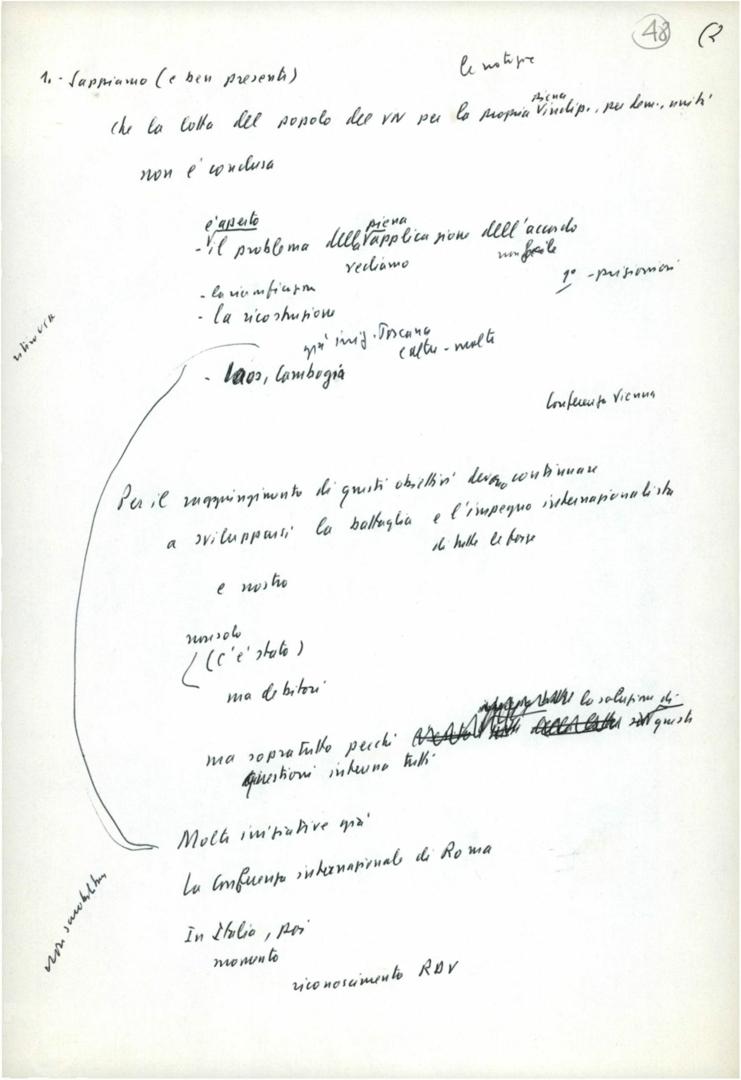 48 (2
1. - Sappiamo (e ben presenti) le notizie
che la lotta del popolo del VN per la propria piena indip., per dem., unità
non è conclusa
è aperto
- il problema della piena applicazione dell'accordo
vediamo non facile
1º - prigionieri
- la riunificazione
- la ricostruzione
già iniz. Toscana
e altre - molte
- Laos, Cambogia
Conferenza Vienna
Per il raggiungimento di questi obiettivi devono continuare
a svilupparsi la battaglia e l'impegno internazionalista
di tutte le forze
e nostro
non solo
(c'è stato)
ma debitori
ma soprattutto perché la soluzione di
questi
questioni interna tutti
Molte iniziative già
La Conferenza internazionale di Roma
In Italia, poi
momento
riconoscimento RDV